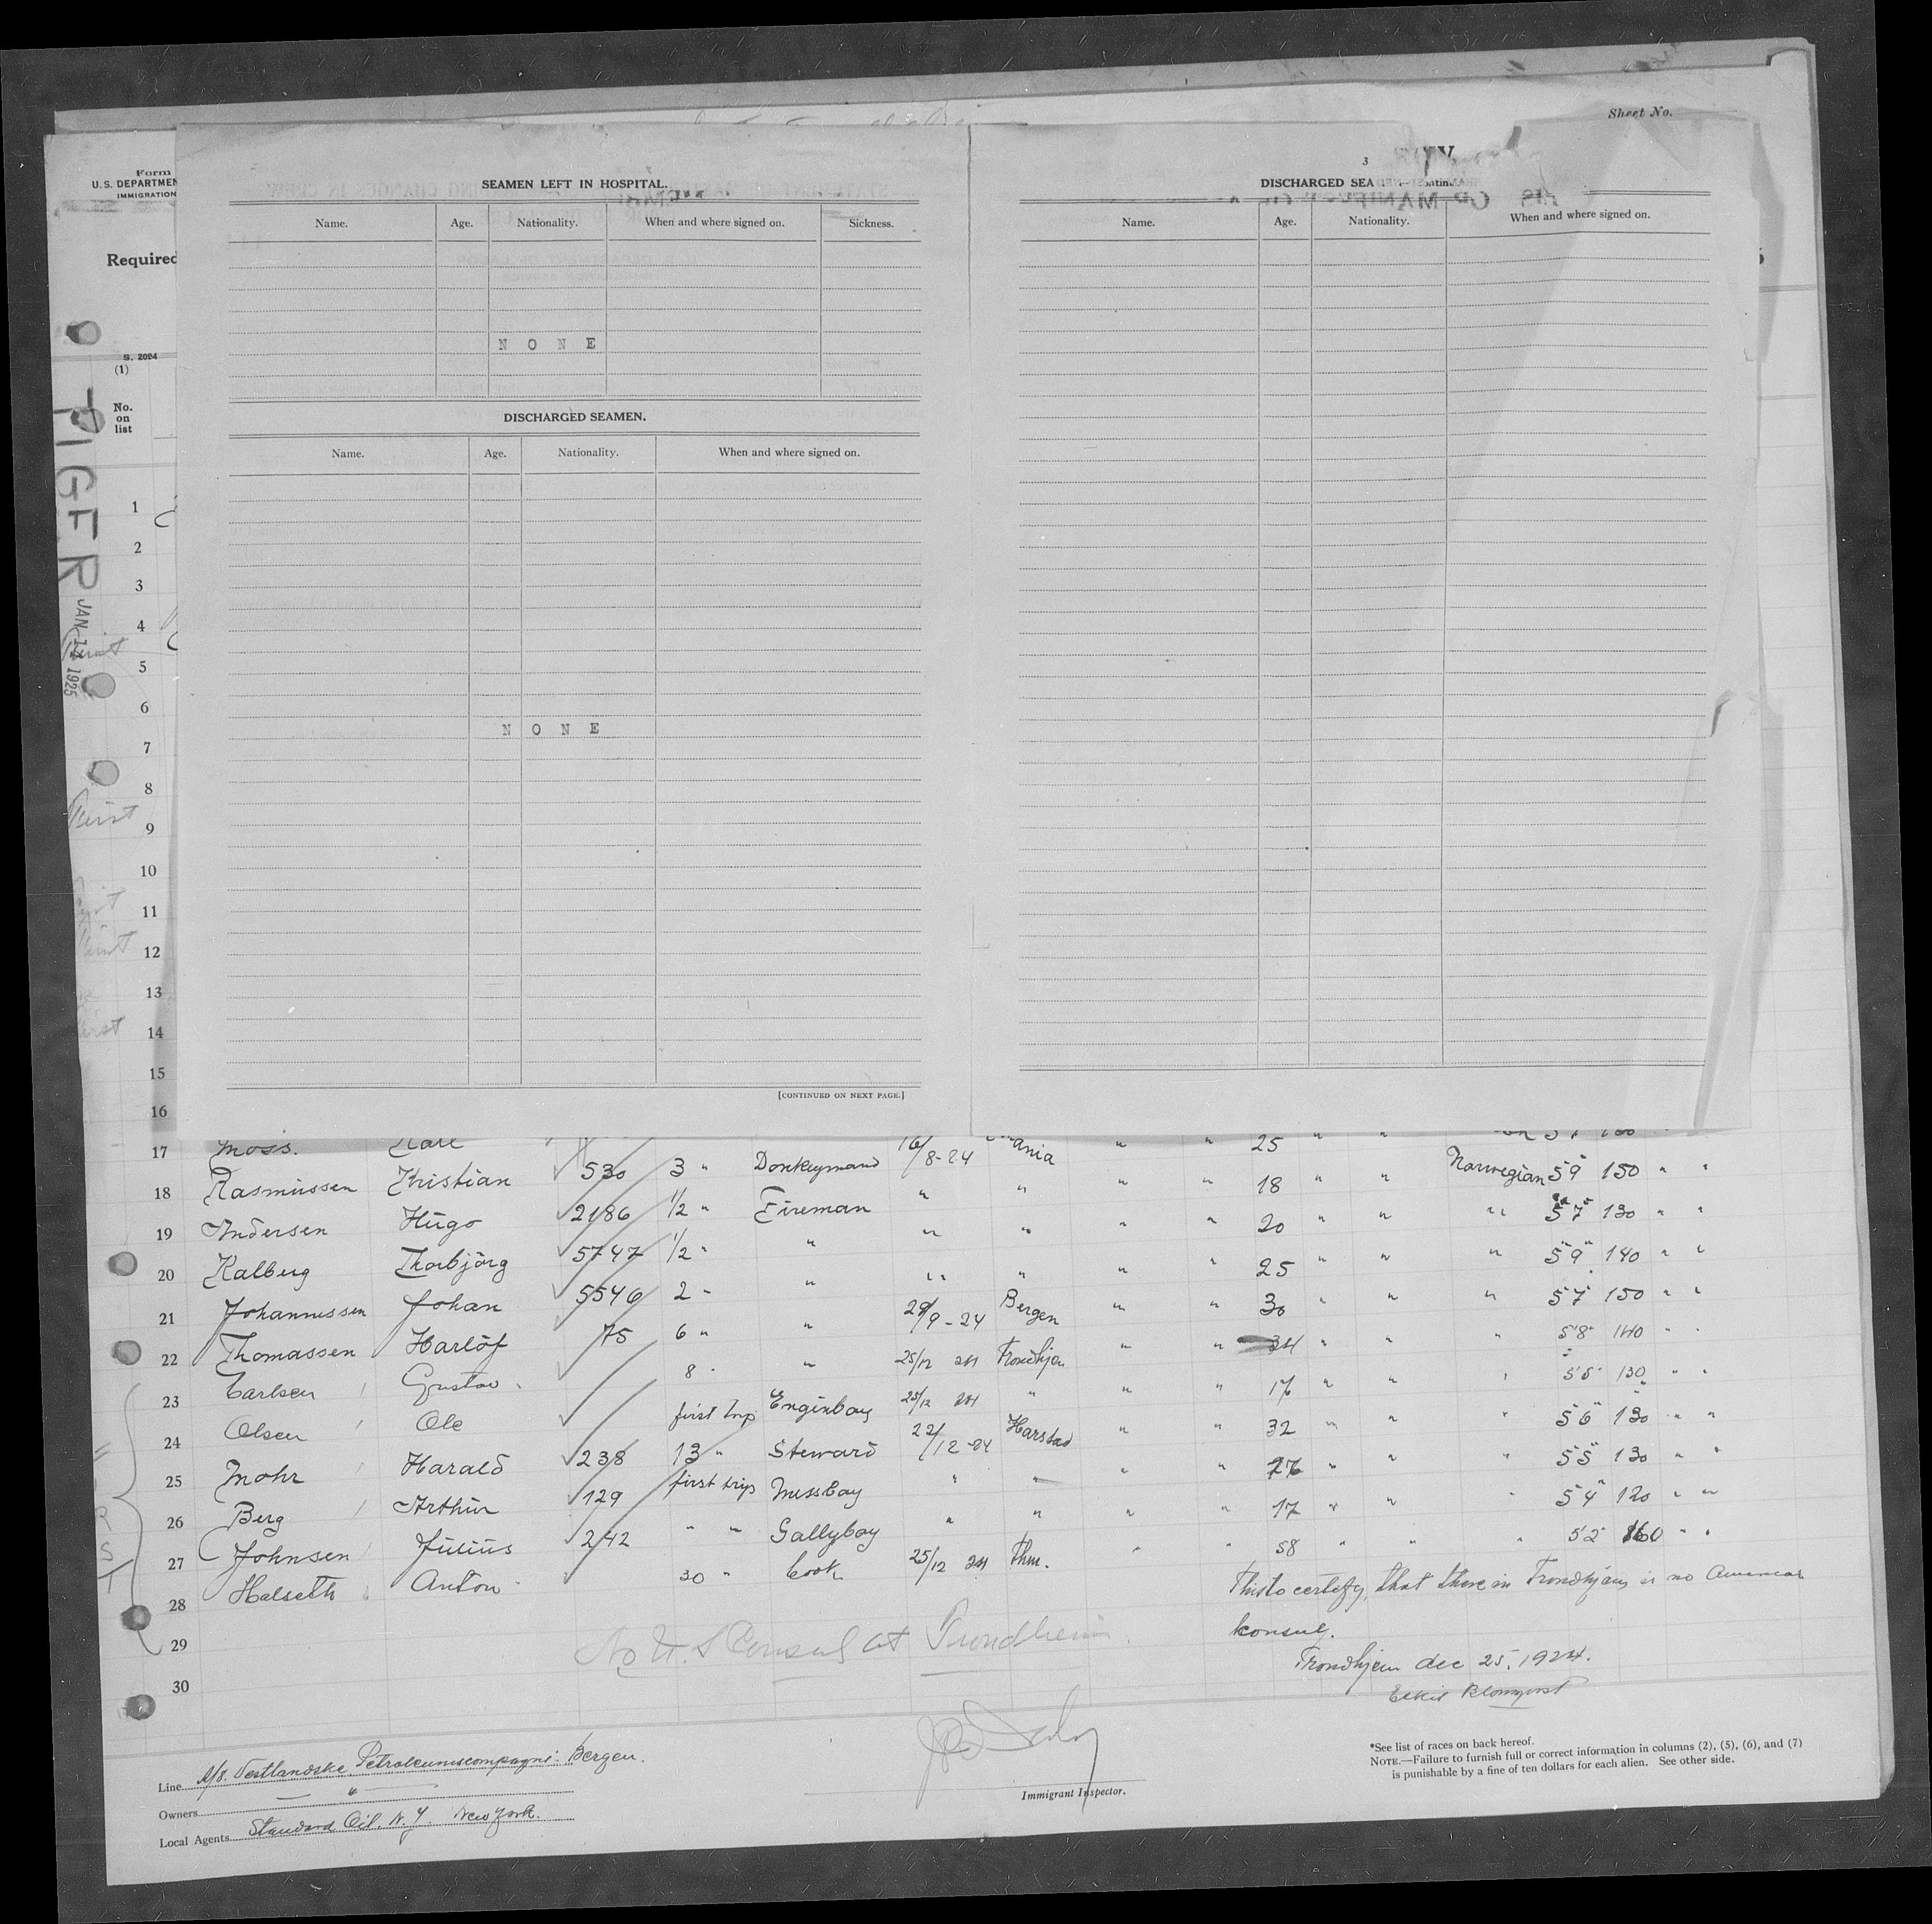 Sheet No.
Form
U.S. DEPARTMEN
IMMIGRATION
Required
S. 2024
(1)
No.
on
list
TIGER
JAN 1925
SEAMEN LEFT IN HOSPITAL.
Name. Age. Nationality. When and where signed on. Sickness.
N O N E
DISCHARGED SEAMEN.
Name. Age. Nationality. When and where signed on.
N O N E
[CONTINUED ON NEXT PAGE.]
3
DISCHARGED SEA
Name. Age. Nationality. When and where signed on.
1
2
3
4
5
6
7
8
9
10
11
12
13
14
15
16
17 Moss. Karl 16/8-24 ania " " 25 " "
18 Rasmussen Kristian 530 3 " Donkeymand " " " " 18 " " Norwegian 5'9" 150 " "
19 Andersen Hugo 2186 1/2 " Fireman " " " " 20 " " " 5'7" 130 " "
20 Kalberg Thorbjörg 5747 1/2 " " " " " " 25 " " " 5'9" 140 " "
21 Johannessen Johan 5546 2 " " 29/9-24 Bergen " " 30 " " " 5'7" 150 " "
22 Thomassen Harlöf 75 6 " " 25/12 24 Trondhjem " " 34 " " " 5'8" 140 " "
23 Carlsen Gustav 8 " " 25/12 24 " " " 17 " " " 5'5" 130 " "
24 Olsen Ole first trip Enginboy 22/12-24 Harstad " " 32 " " " 5'6" 130 " "
25 Mohr Harald 238 13 " Steward " " " " 26 " " " 5'5" 130 " "
26 Berg Arthur 129 first trip Messboy " " " " 17 " " " 5'4" 120 " "
27 Johnsen Julius 242 " " Gallyboy 25/12 24 Thm. " " 58 " " " 5'2" 160 " "
28 Halseth Anton 30 " Cook
29
30
No U.S Consul at Trondheim
This to certify, that there in Trondhjem is no American
konsul.
Trondhjem dec 25. 1924.
Blomqvist
Line A/S. Vestlandske Petroleumscompagni. Bergen.
Owners — " —
Local Agents Standard Oil. N.Y. New York.
Immigrant Inspector.
*See list of races on back hereof.
NOTE.—Failure to furnish full or correct information in columns (2), (5), (6), and (7)
is punishable by a fine of ten dollars for each alien. See other side.